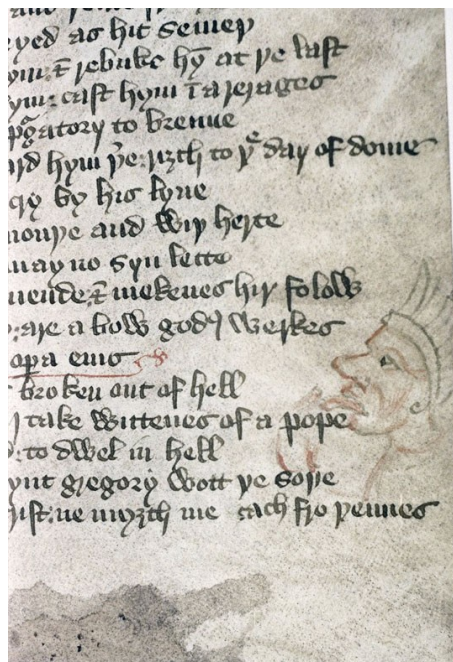 and
yed as hit semeþ
ym: ⁊ rebuke hȳ at þe last
ym: cast hym ī arerages
pgatory to brenne
rd hym þ̉e: riȝth to þͤ day of dome
cry by his lyue
mouþe and wiþ herte
may no syn lette
mende ⁊ mekenes hir folow
: are a bow godꝭ werkes
oꝑa eius
broken out of hell
take wittenes of a pope
: to dwel in hell
ynt gregory wott þe soþe
rist: ne myȝth me cach fro þennes